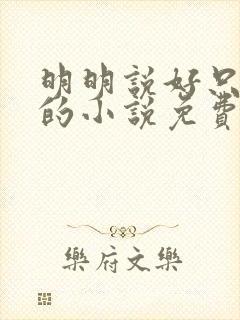 明明説好只
的小説免費
樂府文樂